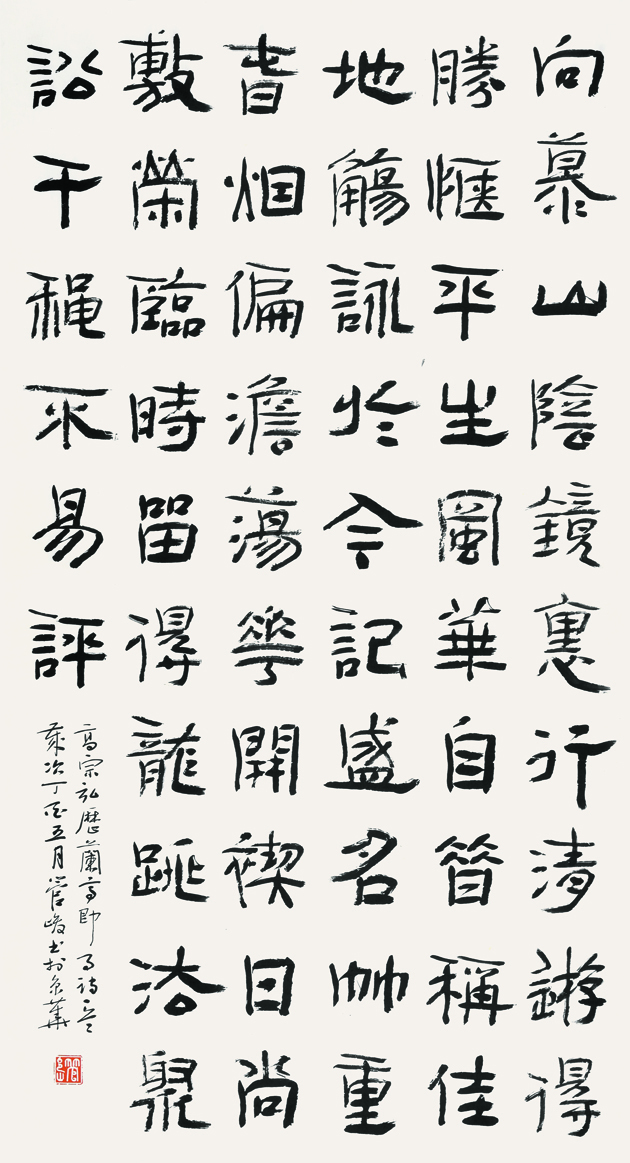 向慕山陰鏡裏行清遊得
勝愜平生風華自昔稱佳
地觴詠於今記盛名竹重
春烟偏澹蕩華開禊日尚
敷榮臨時留得龍跳法聚
訟千秋不易評
高宗弘歷蘭亭即事詩一首
歲次丁酉五月管峻書於京華